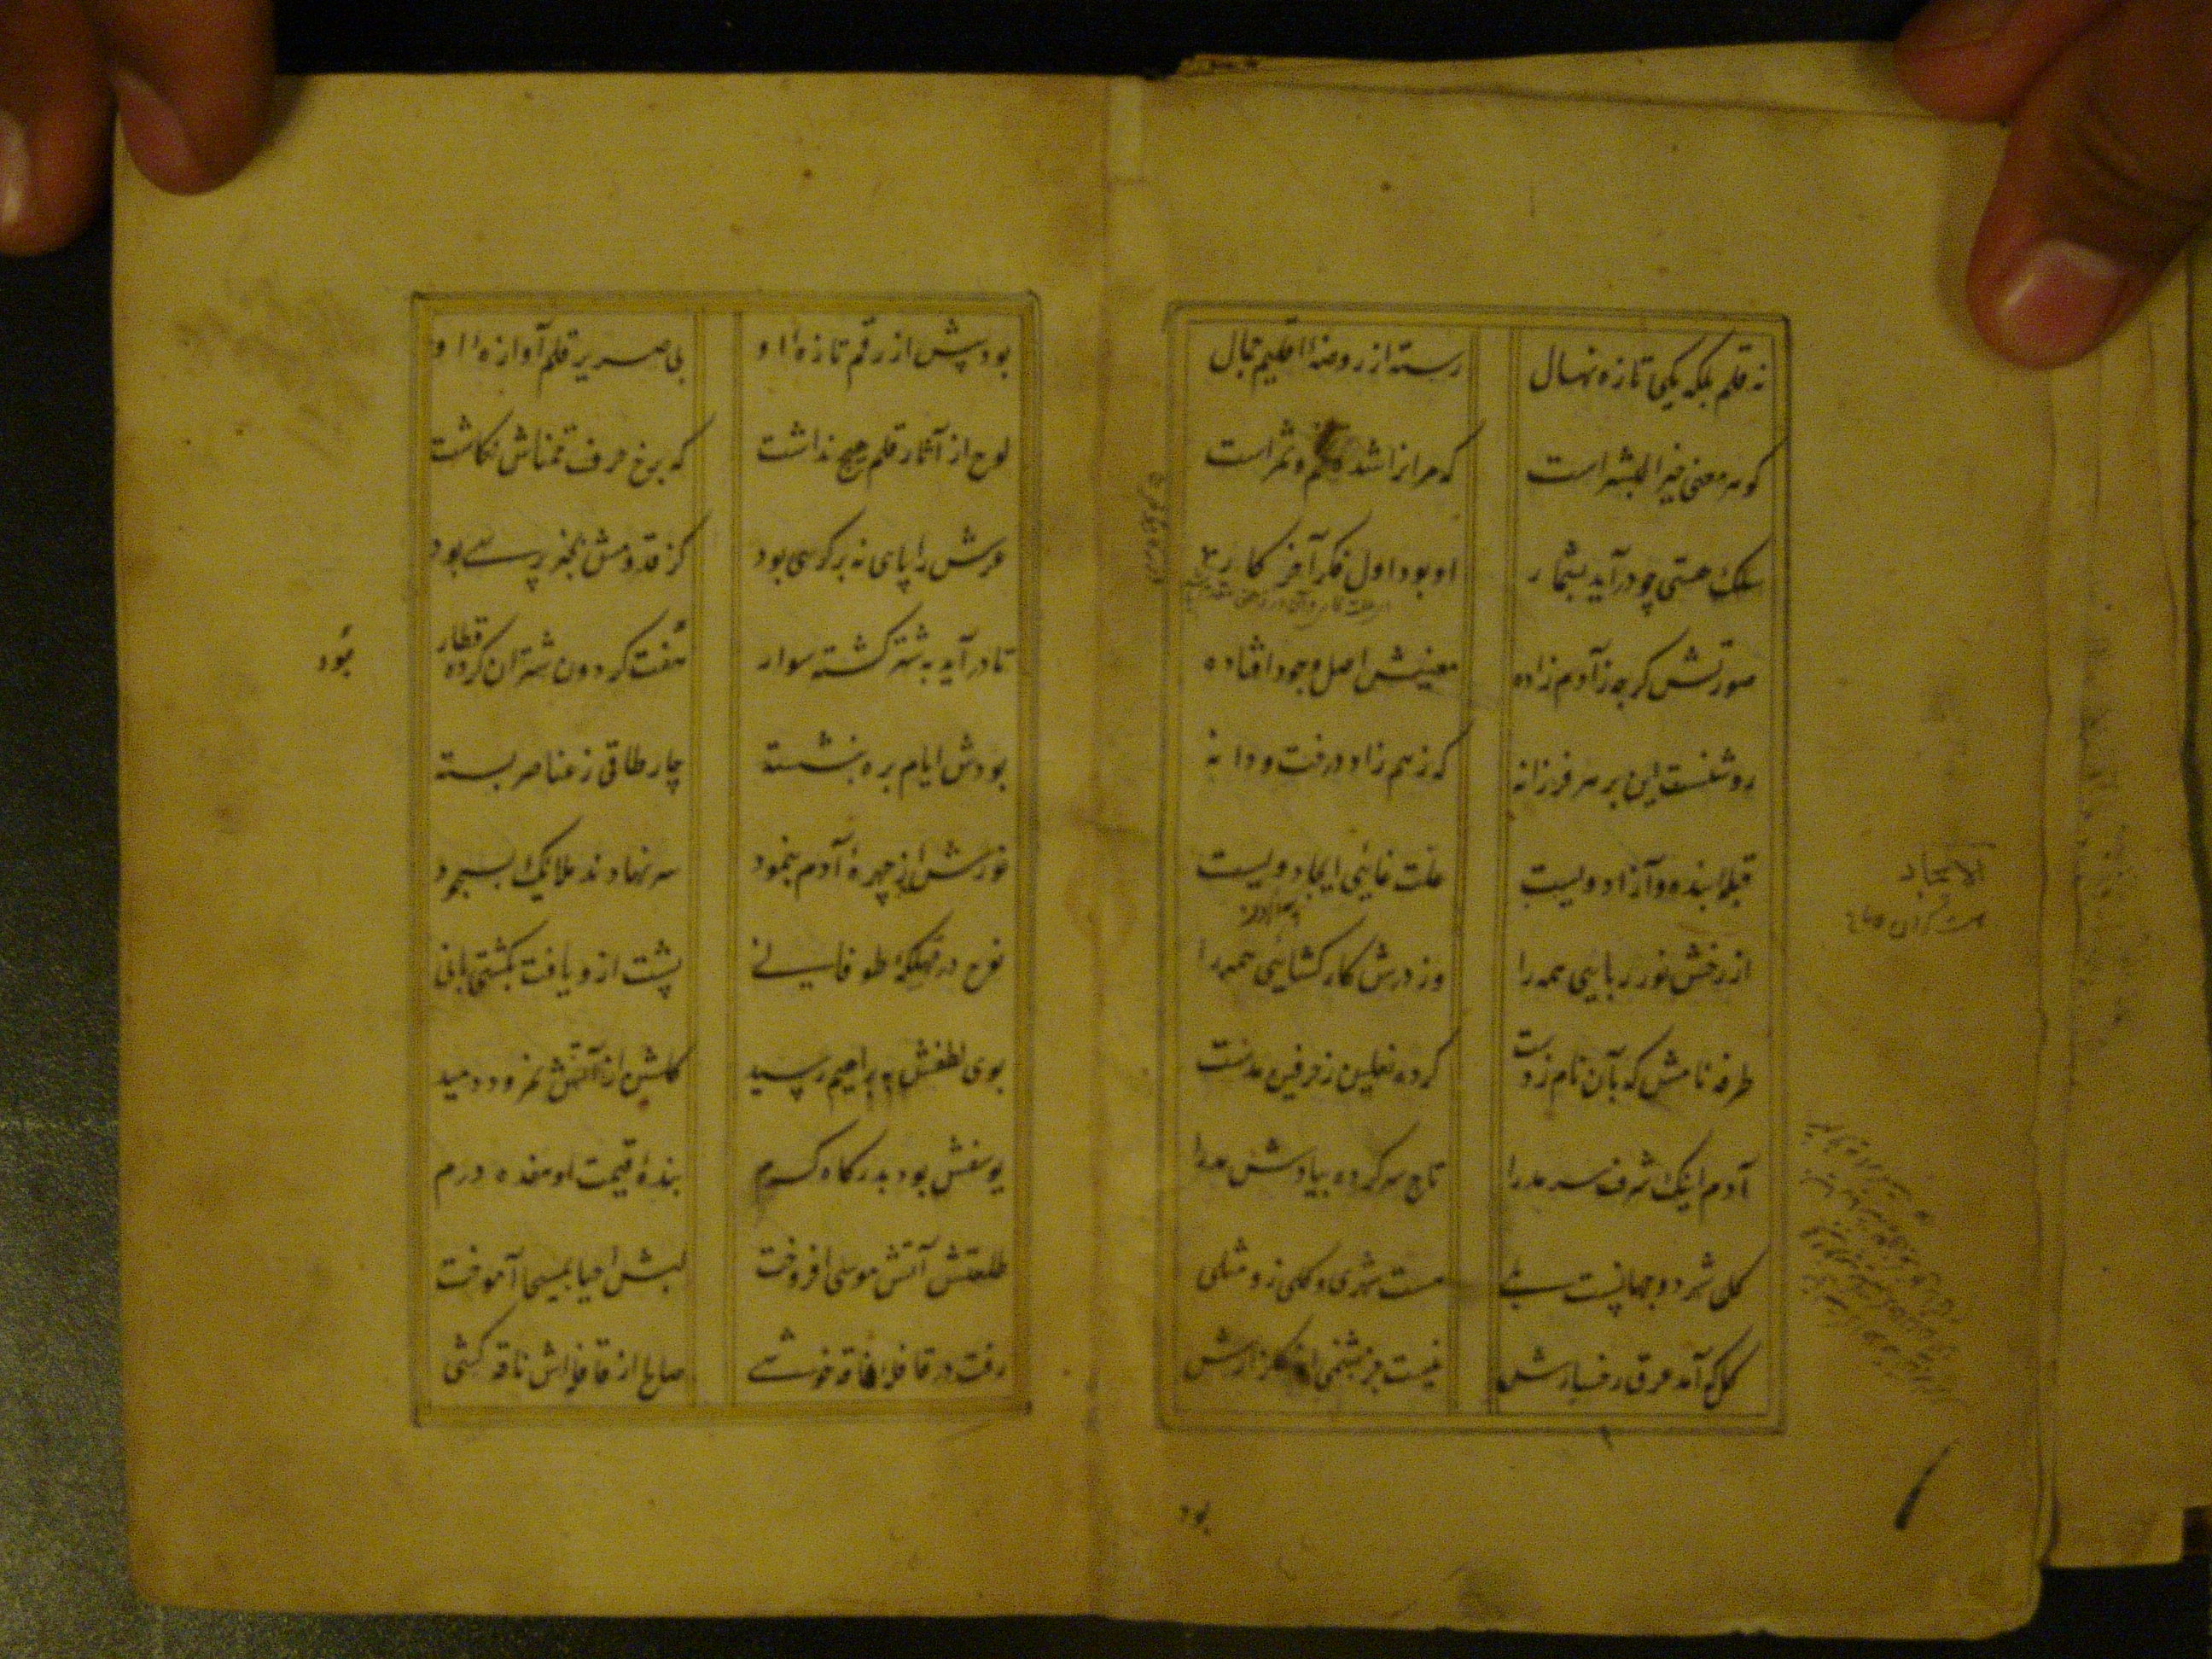 نه قلم بلکه یکی تازه نهال رسته از روضهٔ اقلیم جمال
گوهر معنی خیر البشر است که مر انرا شده تخم و ثمر است
سلک هستی چو درآید بشمار او بود اول فکر آخر کار
صورتش گرچه ز آدم زاده معنیش اصل وجود افتاده
روشنست این بر هر فرزانه که ز هم زاد درخت و دانه
قبلهٔ بنده و آزاد ویست علت غائی ایجاد ویست
از رخش نور ربایی همه را وز درش کار گشایی همه را
طرفه نامش که بآن نام زدست کرده نعلین ز فرقین مدست
آدم اینک شرف سرمد را تاج سر کرده بیادش مد را
گل شهر دو جهانست بلی هست شهری و گلی زو مثلی
گل که آمد عرق رخسارش نیست جز شبنمی از گلزارش
بود
بود پیش از رقم تازهٔ او بی صریر قلم آوازهٔ او
لوح از آثار قلم هیچ نداشت که برخ حرف تمناش نگاشت
عرش را پای نه بر کرسی بود کز قدومش بخبر پرسی بود
تا درآید به شتر گشته سوار هفت گردون شتران کرده قطار
بودش ایام بره بنشسته چار طاقی ز عناصر بسته
نورش از چهرهٔ آدم بنمود سر نهادند ملایک بسجود
نوح در مهلکهٔ طوفانی پشت ازو یافت بکشتی بانی
بوی لطفش به براهیم رسید گلش از آتش نمرود دمید
یوسفش بود بدرگاه کرم بندهٔ قیمت او هفده درم
طلعتش آتش موسی افروخت لبش احیا بمسیحا آموخت
رفت در قافله اش ناقه خوشی صالح از قافله اش ناقه کشی